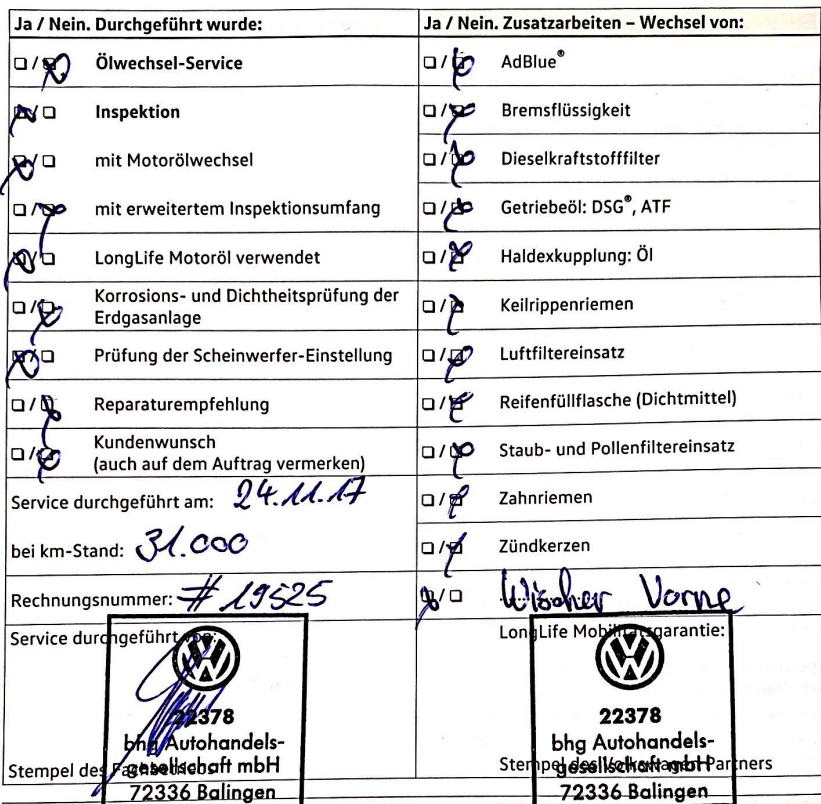 Ja / Nein. Durchgeführt wurde:
Ölwechsel-Service
Inspektion
mit Motorölwechsel
mit erweitertem Inspektionsumfang
LongLife Motoröl verwendet
Korrosions- und Dichtheitsprüfung der
Erdgasanlage
Prüfung der Scheinwerfer-Einstellung
Reparaturempfehlung
Kundenwunsch
(auch auf dem Auftrag vermerken)
Service durchgeführt am: 24.11.17
bei km-Stand: 31.000
Rechnungsnummer: # 19525
Service durchgeführt von:
VW
22378
bhg Autohandels-
gesellschaft mbH
Stempel des Fachbetriebs
72336 Balingen
Ja / Nein. Zusatzarbeiten – Wechsel von:
AdBlue®
Bremsflüssigkeit
Dieselkraftstofffilter
Getriebeöl: DSG®, ATF
Haldexkupplung: Öl
Keilrippenriemen
Luftfiltereinsatz
Reifenfüllflasche (Dichtmittel)
Staub- und Pollenfiltereinsatz
Zahnriemen
Zündkerzen
Wischer Vorne
LongLife Mobilitätsgarantie:
VW
22378
bhg Autohandels-
gesellschaft mbH
Stempel des Volkswagen Partners
72336 Balingen